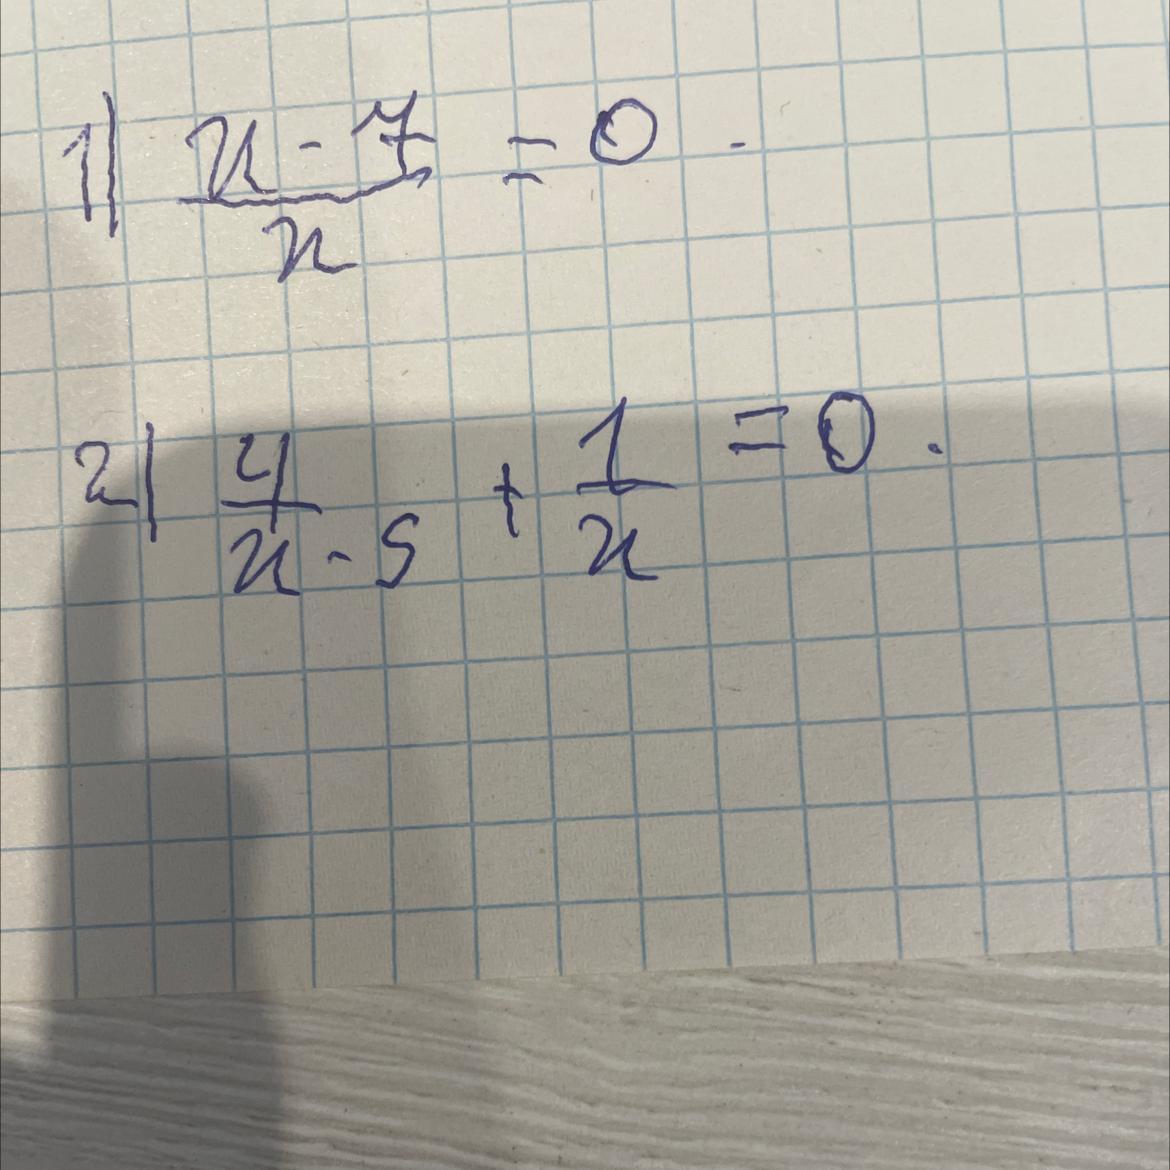 1) x - 7 / x = 0.
2) 4 / x - 5 + 1 / x = 0.